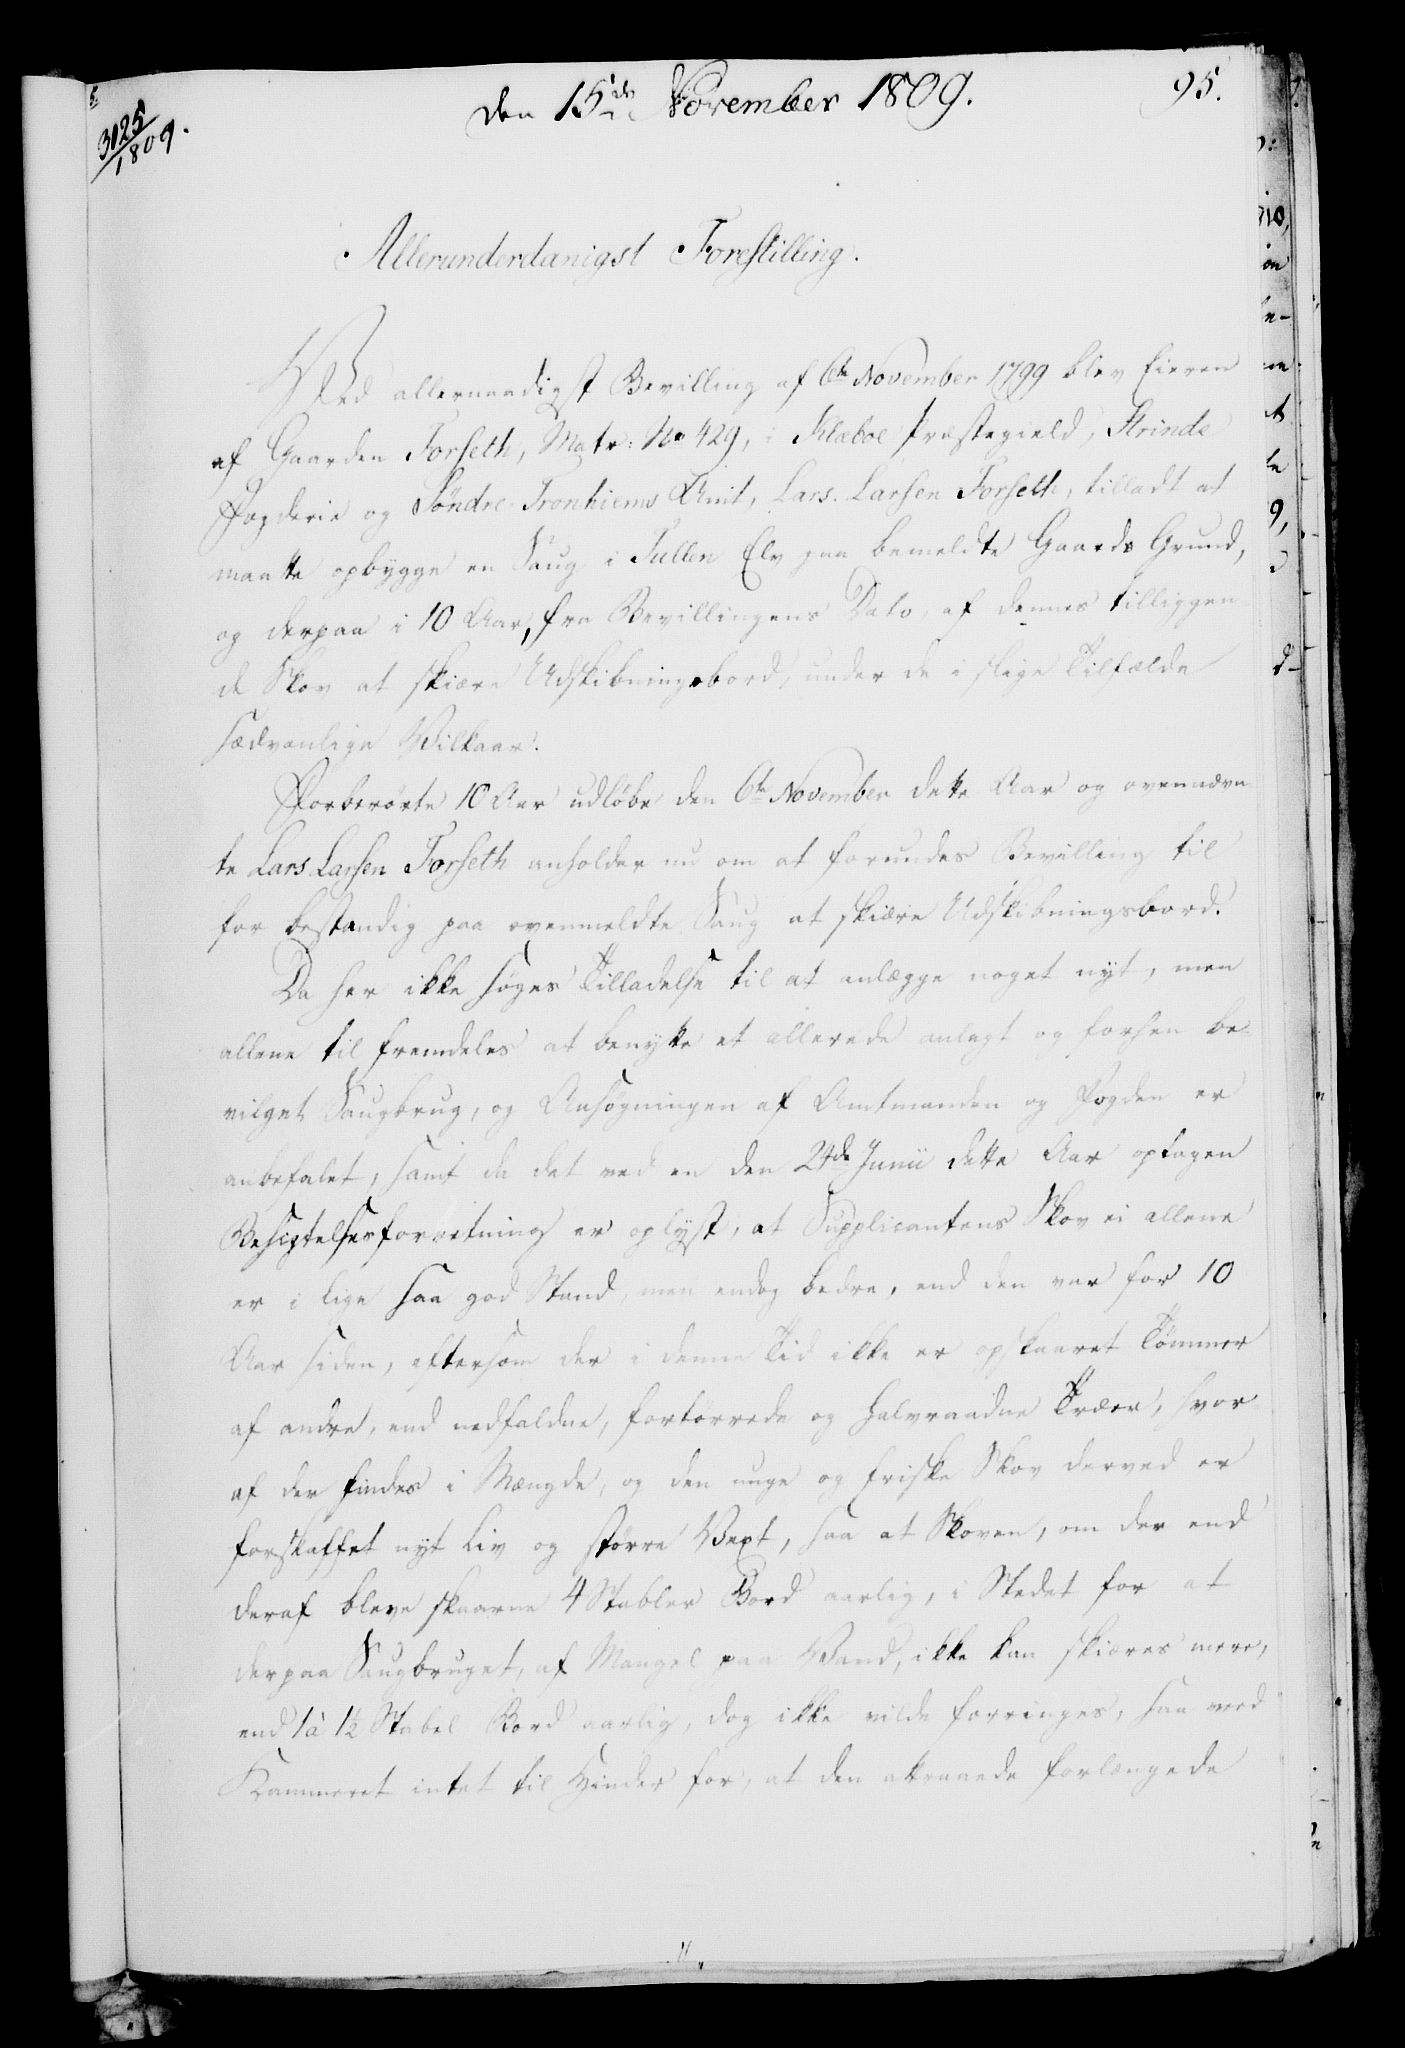 3125/1809.
Den 15de November 1809.
95.
Allerunderdanigst Forestilling.
Ved allernaadigst Bevilling af 6te November 1799 blev Eieren
af Gaarden Forseth, Matr: No 429, i Klæboe Præstegield, Strinde
Fogderie og Söndre Tronhiems Amt, Lars Larsen Forseth, tilladt at
maatte opbygge en Saug i Tullen Elv paa bemeldte Gaards Grund,
og derpaa i 10 Aar, fra Bevillingens Dato, af dennes tilliggen
de Skov at skiære Udskibningsbord, under de i slige Tilfælde
sædvanlige Vilkaar.
Forberørte 10 Aar udløbe den 6te November dette Aar og ovennævn
te Lars Larsen Forseth anholder nu om at forundes Bevilling til
for bestandig paa ovenmeldte Saug at skiære Udskibningsbord.
Da her ikke søges Tilladelse til at anlægge noget nyt, men
allene til fremdeles at benytte et allerede anlagt og forhen be
vilget Saugbrug, og Ansøgningen af Amtmanden og Fogden er
anbefalet, samt da det ved en den 24de Junii dette Aar optagen
Besigtelsesforretning er oplyst, at Supplicantens Skov ei allene
er i lige saa god Stand, men endog bedre, end den var for 10
Aar siden, eftersom der i denne Tid ikke er opskaaret Tømmer
af andre, end nedfaldne, fortørrede og halvraadne Træer, hvor
af der findes i Mængde, og den unge og friske Skov derved er
forskaffet nyt Liv og større Vext, saa at Skoven, om der end
deraf bleve skaarne 4 Stabler Bord aarlig, i Stedet for at
derpaa Saugbruget, af Mangel paa Vand, ikke kan skiæres mere,
end 1 à 1½ Stabel Bord aarlig, dog ikke vilde forringes, saa veed
Kammeret intet til Hinder for, at den attraaede forlængede